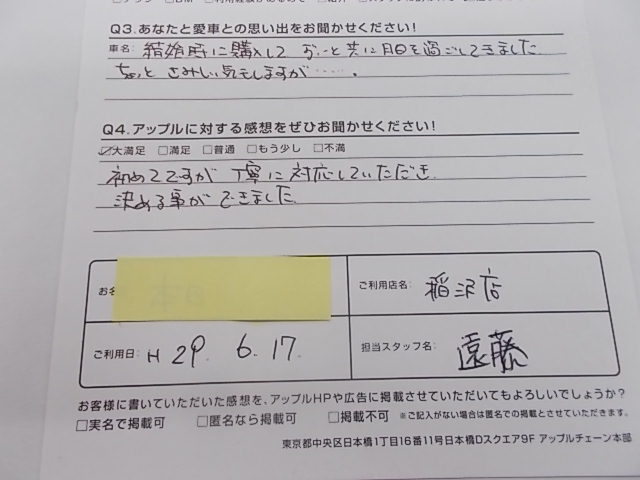 Q3.あなたと愛車との思い出をお聞かせください!
車名: 結婚時に購入して ずっと共に月日を過ごしてきました
ちょっと さみしい気もしますが‥‥‥。
Q4.アップルに対する感想をぜひお聞かせください!
☑大満足 □満足 □普通 □もう少し □不満
初めてですが 丁寧に対応していただき
決める事ができました
お名
ご利用店名: 稲沢店
ご利用日: H 29. 6. 17.
担当スタッフ名: 遠藤
お客様に書いていただいた感想を、アップルHPや広告に掲載させていただいてもよろしいでしょうか?
□実名で掲載可 □匿名なら掲載可 □掲載不可 ※ご記入がない場合は匿名での掲載とさせていただきます。
東京都中央区日本橋1丁目16番11号日本橋Dスクエア9F アップルチェーン本部